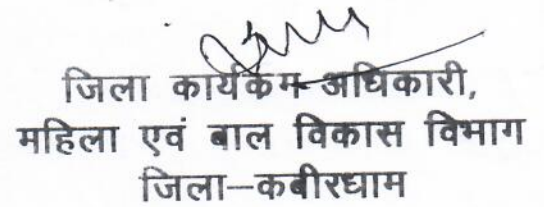 जिला कार्यकम अधिकारी,
महिला एवं बाल विकास विभाग
जिला–कबीरधाम